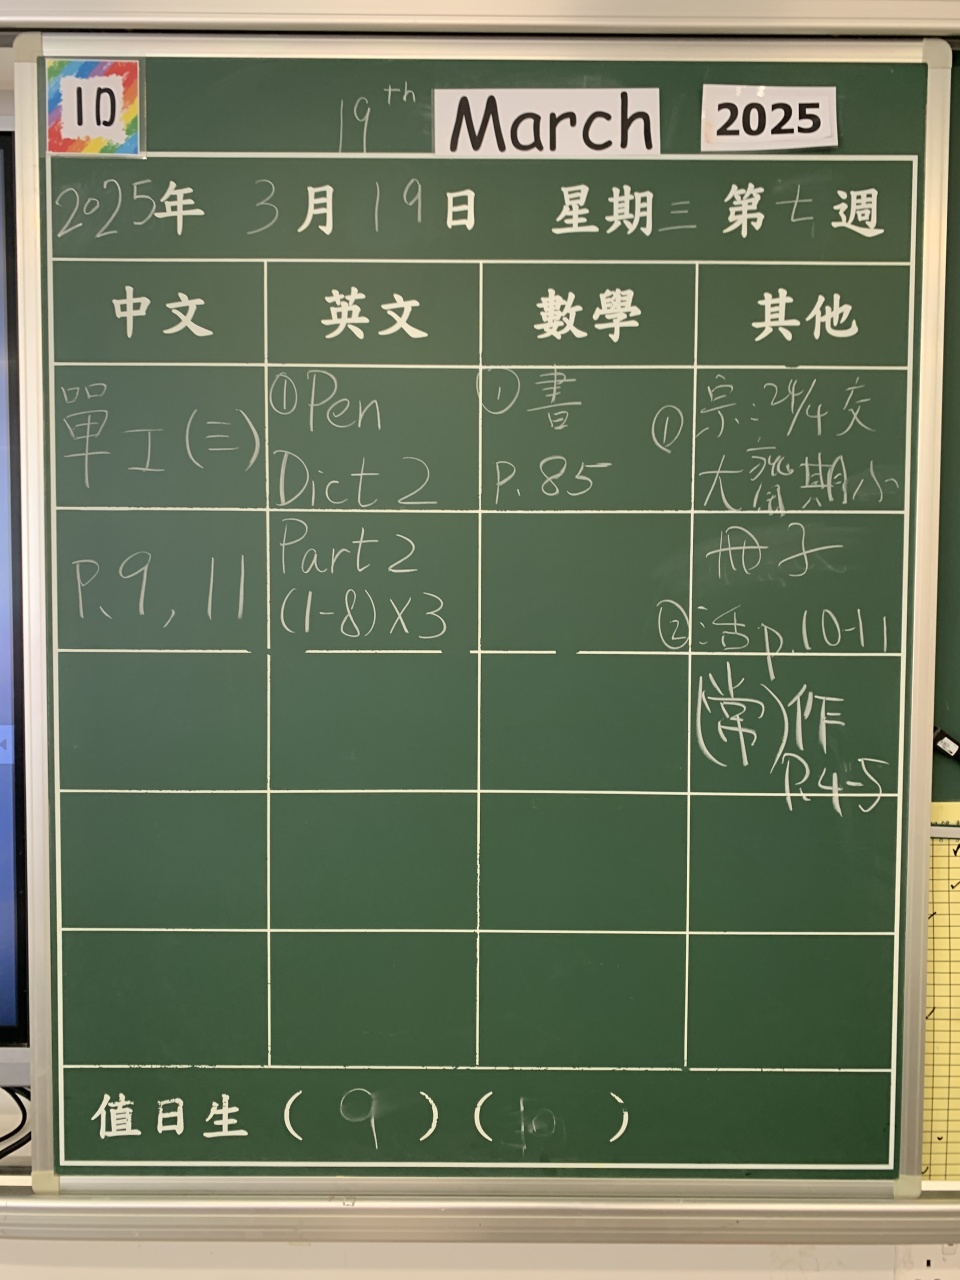 1D
19th March 2025
2025年 3月19日 星期三 第七週
中文 英文 數學 其他
單工(三)
P.9, 11
① Pen
Dict 2
Part 2
(1-8)×3
① 書
P.85
① 宗:24/4交
大齋期小
冊子
② 活p.10-11
(常)作
P.4-5
值日生 ( 9 ) ( 10 )